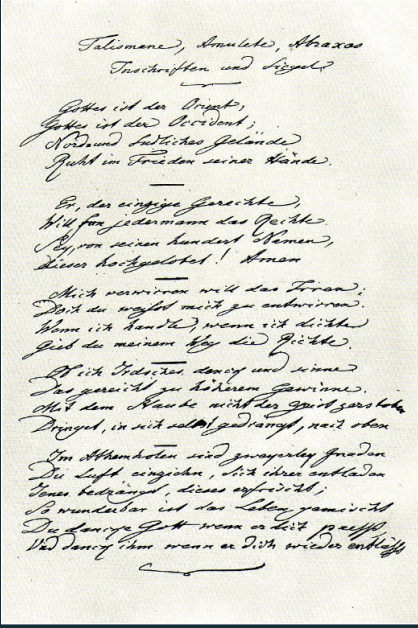 Talismane, Amulete, Abraxas
Inschriften und Siegel.
Gottes ist der Orient,
Gottes ist der Occident;
Nord und Südliches Gelände
Ruht im Frieden seiner Hände.
Er, der einzige Gerechte,
Will für jedermann das Rechte.
Sey, von seinen hundert Namen,
Dieser hochgelobet! Amen
Mich verwirren will das Irren;
Doch du weisst mich zu entwirren.
Wenn ich handle, wenn ich dichte
Gieb du meinem Weg die Richte.
Ob ich Irdsches denck und sinne
Das gereicht zu höherem Gewinne.
Mit dem Staube nicht der Geist zerstoben
Dringet, in sich selbst gedrängt, nach oben
Im Athemholen sind zweyerley Gnaden
Die Luft einziehn, sich ihrer entladen
Jenes bedrängt, dieses erfrischt;
So wunderbar ist das Leben gemischt
Du dancke Gott wenn er dich presst
Und danck ihm wenn er dich wieder entlässt